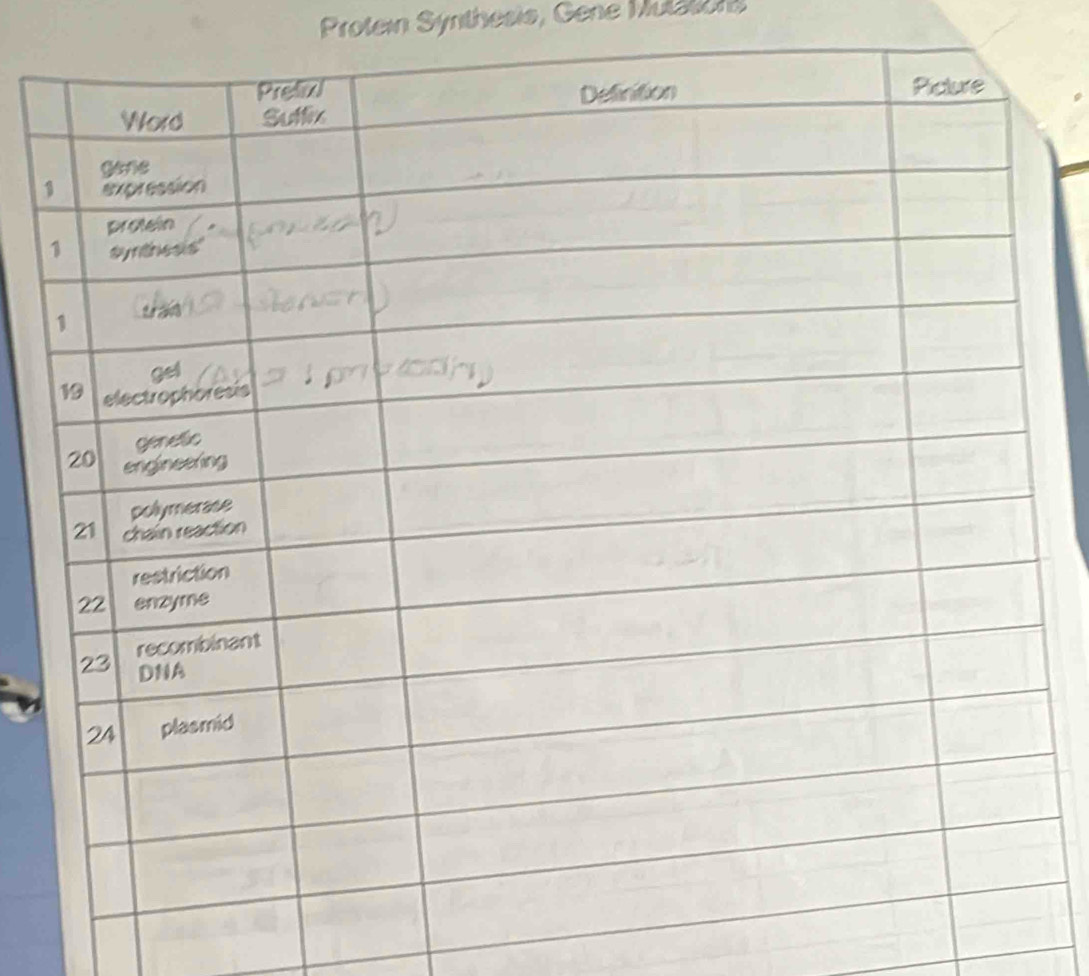 Protein Synthesis, Gene Mutations
Word
Prefix/
Suffix
Definition
Picture
1
gene
expression
1
protein
synthesis
1
19
gel
electrophoresis
20
genetic
engineering
21
polymerase
chain reaction
22
restriction
enzyme
23
recombinant
DNA
24
plasmid